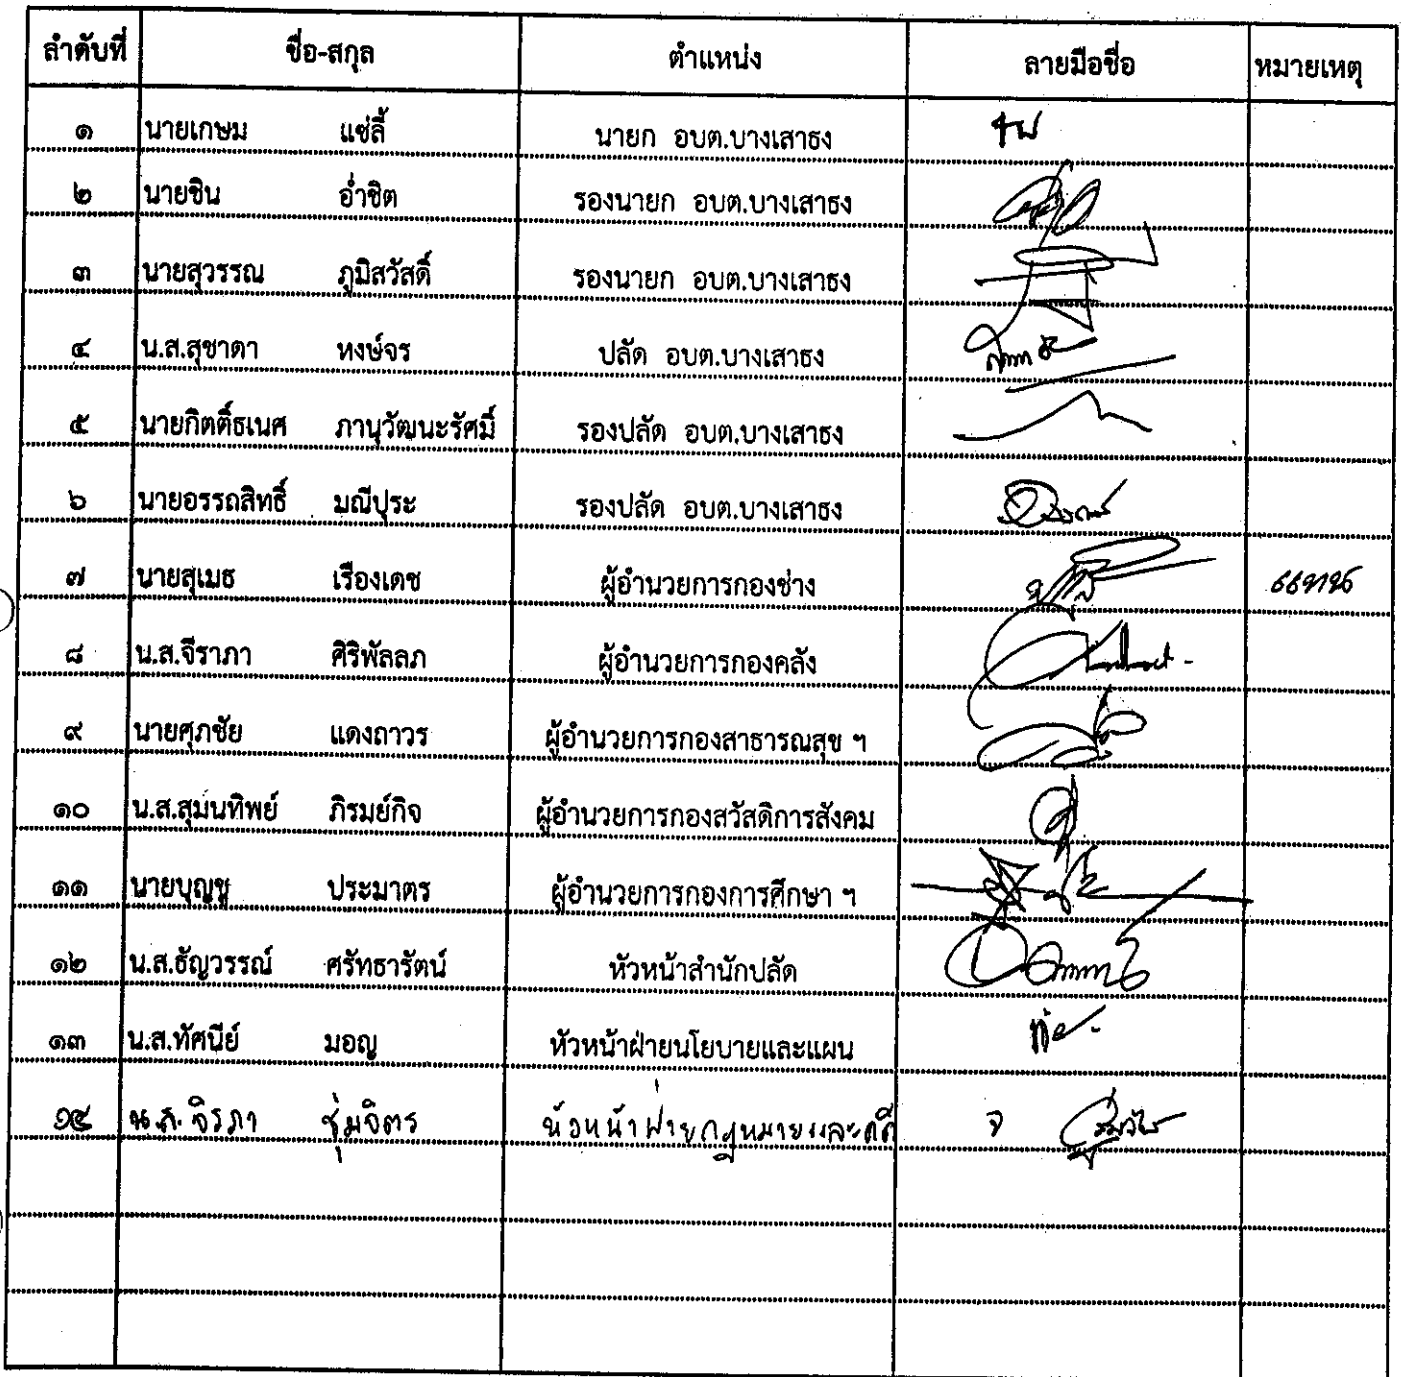 ลำดับที่ ชื่อ-สกุล ตำแหน่ง ลายมือชื่อ หมายเหตุ
๑ นายเกษม แซ่ลี้ นายก อบต.บางเสาธง
๒ นายชิน อ่ำชิต รองนายก อบต.บางเสาธง
๓ นายสุวรรณ ภูมิสวัสดิ์ รองนายก อบต.บางเสาธง
๔ น.ส.สุชาดา หงษ์จร ปลัด อบต.บางเสาธง
๕ นายกิตติ์ธเนศ ภานุวัฒนะรัศมิ์ รองปลัด อบต.บางเสาธง
๖ นายอรรถสิทธิ์ มณีปุระ รองปลัด อบต.บางเสาธง
๗ นายสุเมธ เรืองเดช ผู้อำนวยการกองช่าง แทน
๘ น.ส.จีราภา ศิริพัลลภ ผู้อำนวยการกองคลัง
๙ นายศุภชัย แดงถาวร ผู้อำนวยการกองสาธารณสุข ฯ
๑๐ น.ส.สุมนทิพย์ ภิรมย์กิจ ผู้อำนวยการกองสวัสดิการสังคม
๑๑ นายบุญชู ประมาตร ผู้อำนวยการกองการศึกษา ฯ
๑๒ น.ส.ธัญวรรณ์ ศรัทธารัตน์ หัวหน้าสำนักปลัด
๑๓ น.ส.ทัศนีย์ มอญ หัวหน้าฝ่ายนโยบายและแผน
๑๔ น.ส. จิรภา ชุ่มจิตร หัวหน้าฝ่ายกฎหมายและคดี